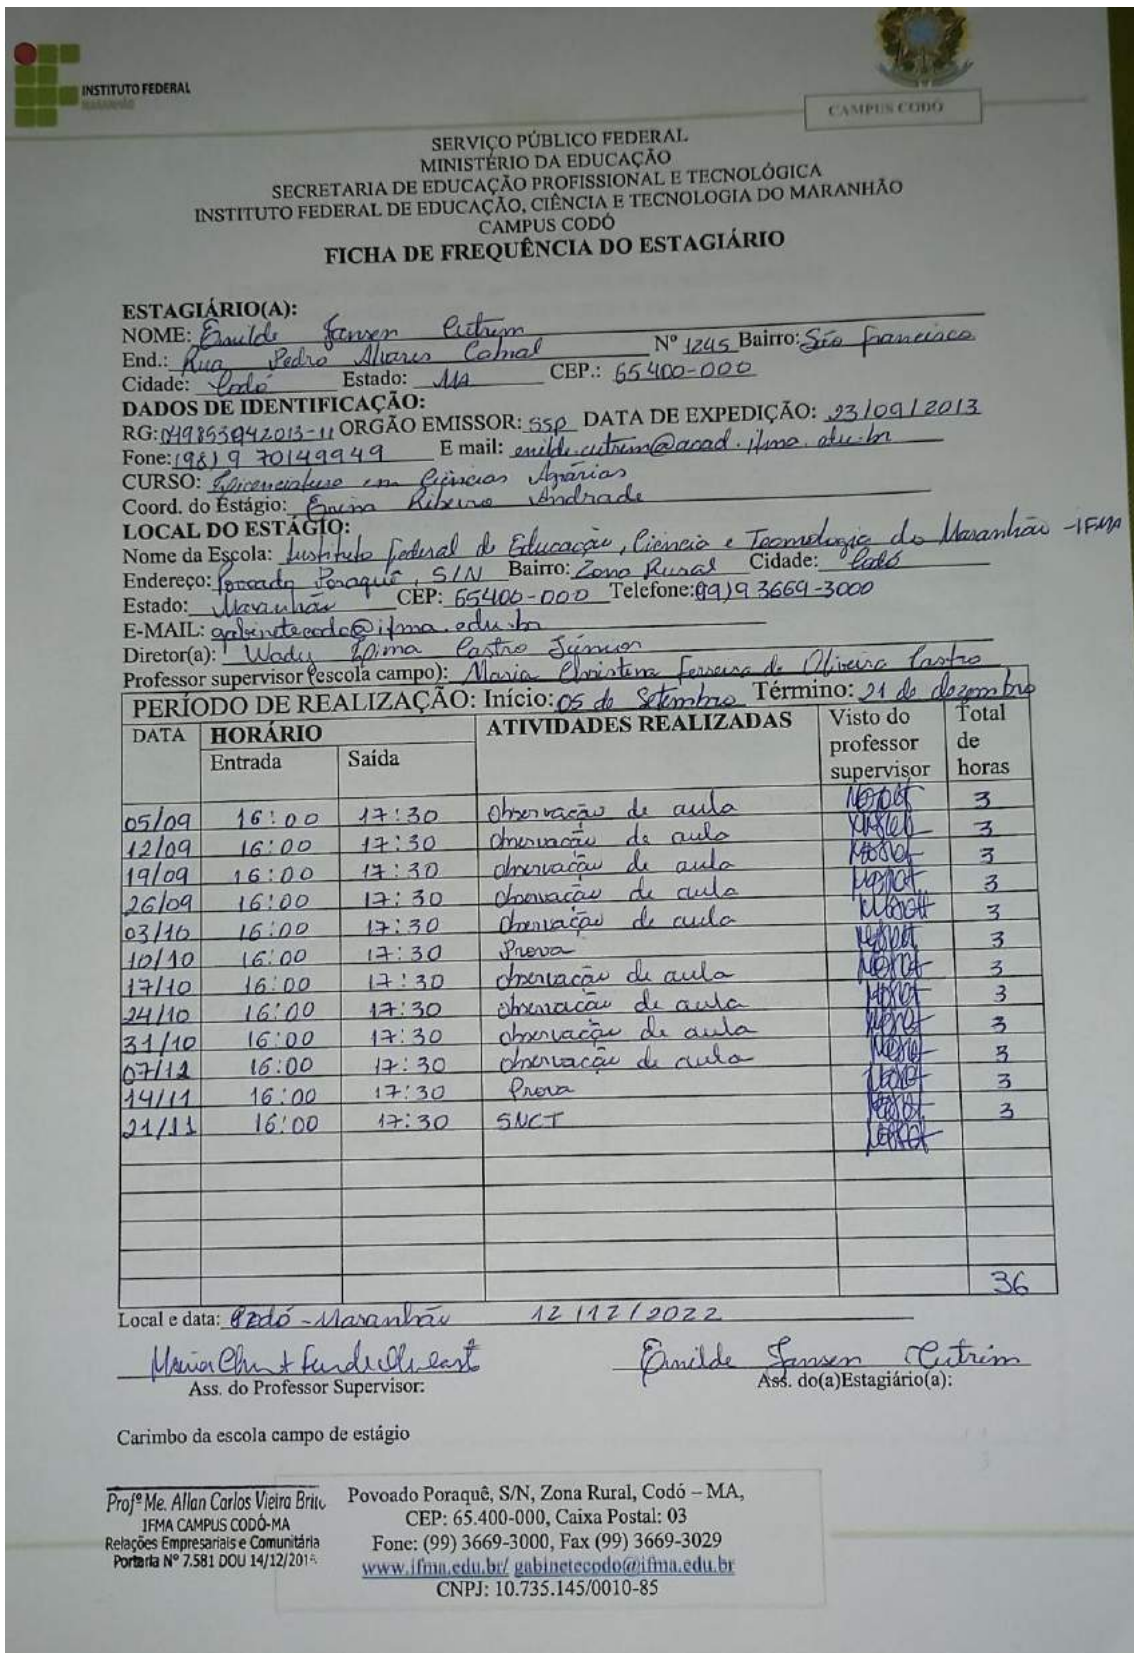 INSTITUTO FEDERAL
MARANHÃO
CAMPUS CODÓ
SERVIÇO PÚBLICO FEDERAL
MINISTÉRIO DA EDUCAÇÃO
SECRETARIA DE EDUCAÇÃO PROFISSIONAL E TECNOLÓGICA
INSTITUTO FEDERAL DE EDUCAÇÃO, CIÊNCIA E TECNOLOGIA DO MARANHÃO
CAMPUS CODÓ
FICHA DE FREQUÊNCIA DO ESTAGIÁRIO
ESTAGIÁRIO(A):
NOME: Enilde Jansen Cutrim
End.: Rua Pedro Alvares Cabral Nº 1245 Bairro: São francisco
Cidade: Codó Estado: MA CEP.: 65400-000
DADOS DE IDENTIFICAÇÃO:
RG: 049853942013-11 ORGÃO EMISSOR: SSP DATA DE EXPEDIÇÃO: 23/09/2013
Fone: (98) 9 70149949 E mail: enilde.cutrim@acad.ifma.edu.br
CURSO: Licenciatura em Ciências Agrárias
Coord. do Estágio: Ribeiro Andrade
LOCAL DO ESTÁGIO:
Nome da Escola: Instituto federal de Educação, Ciencia e Tecnologia do Maranhão -IFMA
Endereço: Povoado Poraquê, S/N Bairro: Zona Rural Cidade: Codó
Estado: Maranhão CEP: 65400-000 Telefone: (99) 9 3669-3000
E-MAIL: gabinetecodo@ifma.edu.br
Diretor(a): Wady Lima Castro Júnior
Professor supervisor (escola campo): Maria Christina Ferreira de Oliveira Castro
PERÍODO DE REALIZAÇÃO: Início: 05 de Setembro Término: 21 de dezembro
DATA HORÁRIO ATIVIDADES REALIZADAS Visto do professor supervisor Total de horas
Entrada Saída
05/09 16:00 17:30 Observação de aula 3
12/09 16:00 17:30 Observação de aula 3
19/09 16:00 17:30 observação de aula 3
26/09 16:00 17:30 Observação de aula 3
03/10 16:00 17:30 Observação de aula 3
10/10 16:00 17:30 Prova 3
17/10 16:00 17:30 observação de aula 3
24/10 16:00 17:30 observação de aula 3
31/10 16:00 17:30 observação de aula 3
07/11 16:00 17:30 observação de aula 3
14/11 16:00 17:30 Prova 3
21/11 16:00 17:30 SNCT 3
36
Local e data: Codó - Maranhão 12/12/2022
Enilde Jansen Cutrim
Ass. do Professor Supervisor: Ass. do(a)Estagiário(a):
Carimbo da escola campo de estágio
Profº Me. Allan Carlos Vieira Brito
IFMA CAMPUS CODÓ-MA
Relações Empresariais e Comunitária
Portaria Nº 7.581 DOU 14/12/201
Povoado Poraquê, S/N, Zona Rural, Codó – MA,
CEP: 65.400-000, Caixa Postal: 03
Fone: (99) 3669-3000, Fax (99) 3669-3029
www.ifma.edu.br/ gabinetecodo@ifma.edu.br
CNPJ: 10.735.145/0010-85